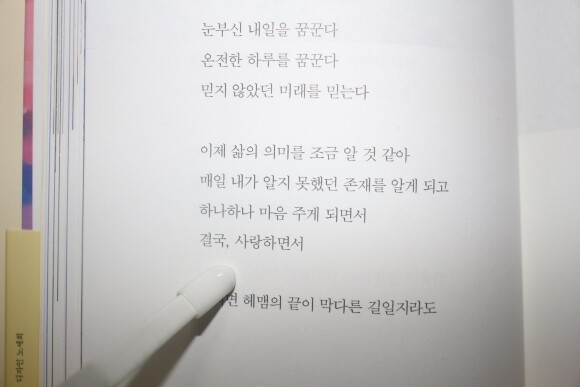 눈부신 내일을 꿈꾼다
온전한 하루를 꿈꾼다
믿지 않았던 미래를 믿는다
이제 삶의 의미를 조금 알 것 같아
매일 내가 알지 못했던 존재를 알게 되고
하나하나 마음 주게 되면서
결국, 사랑하면서
헤맴의 끝이 막다른 길일지라도
디자인 노세희